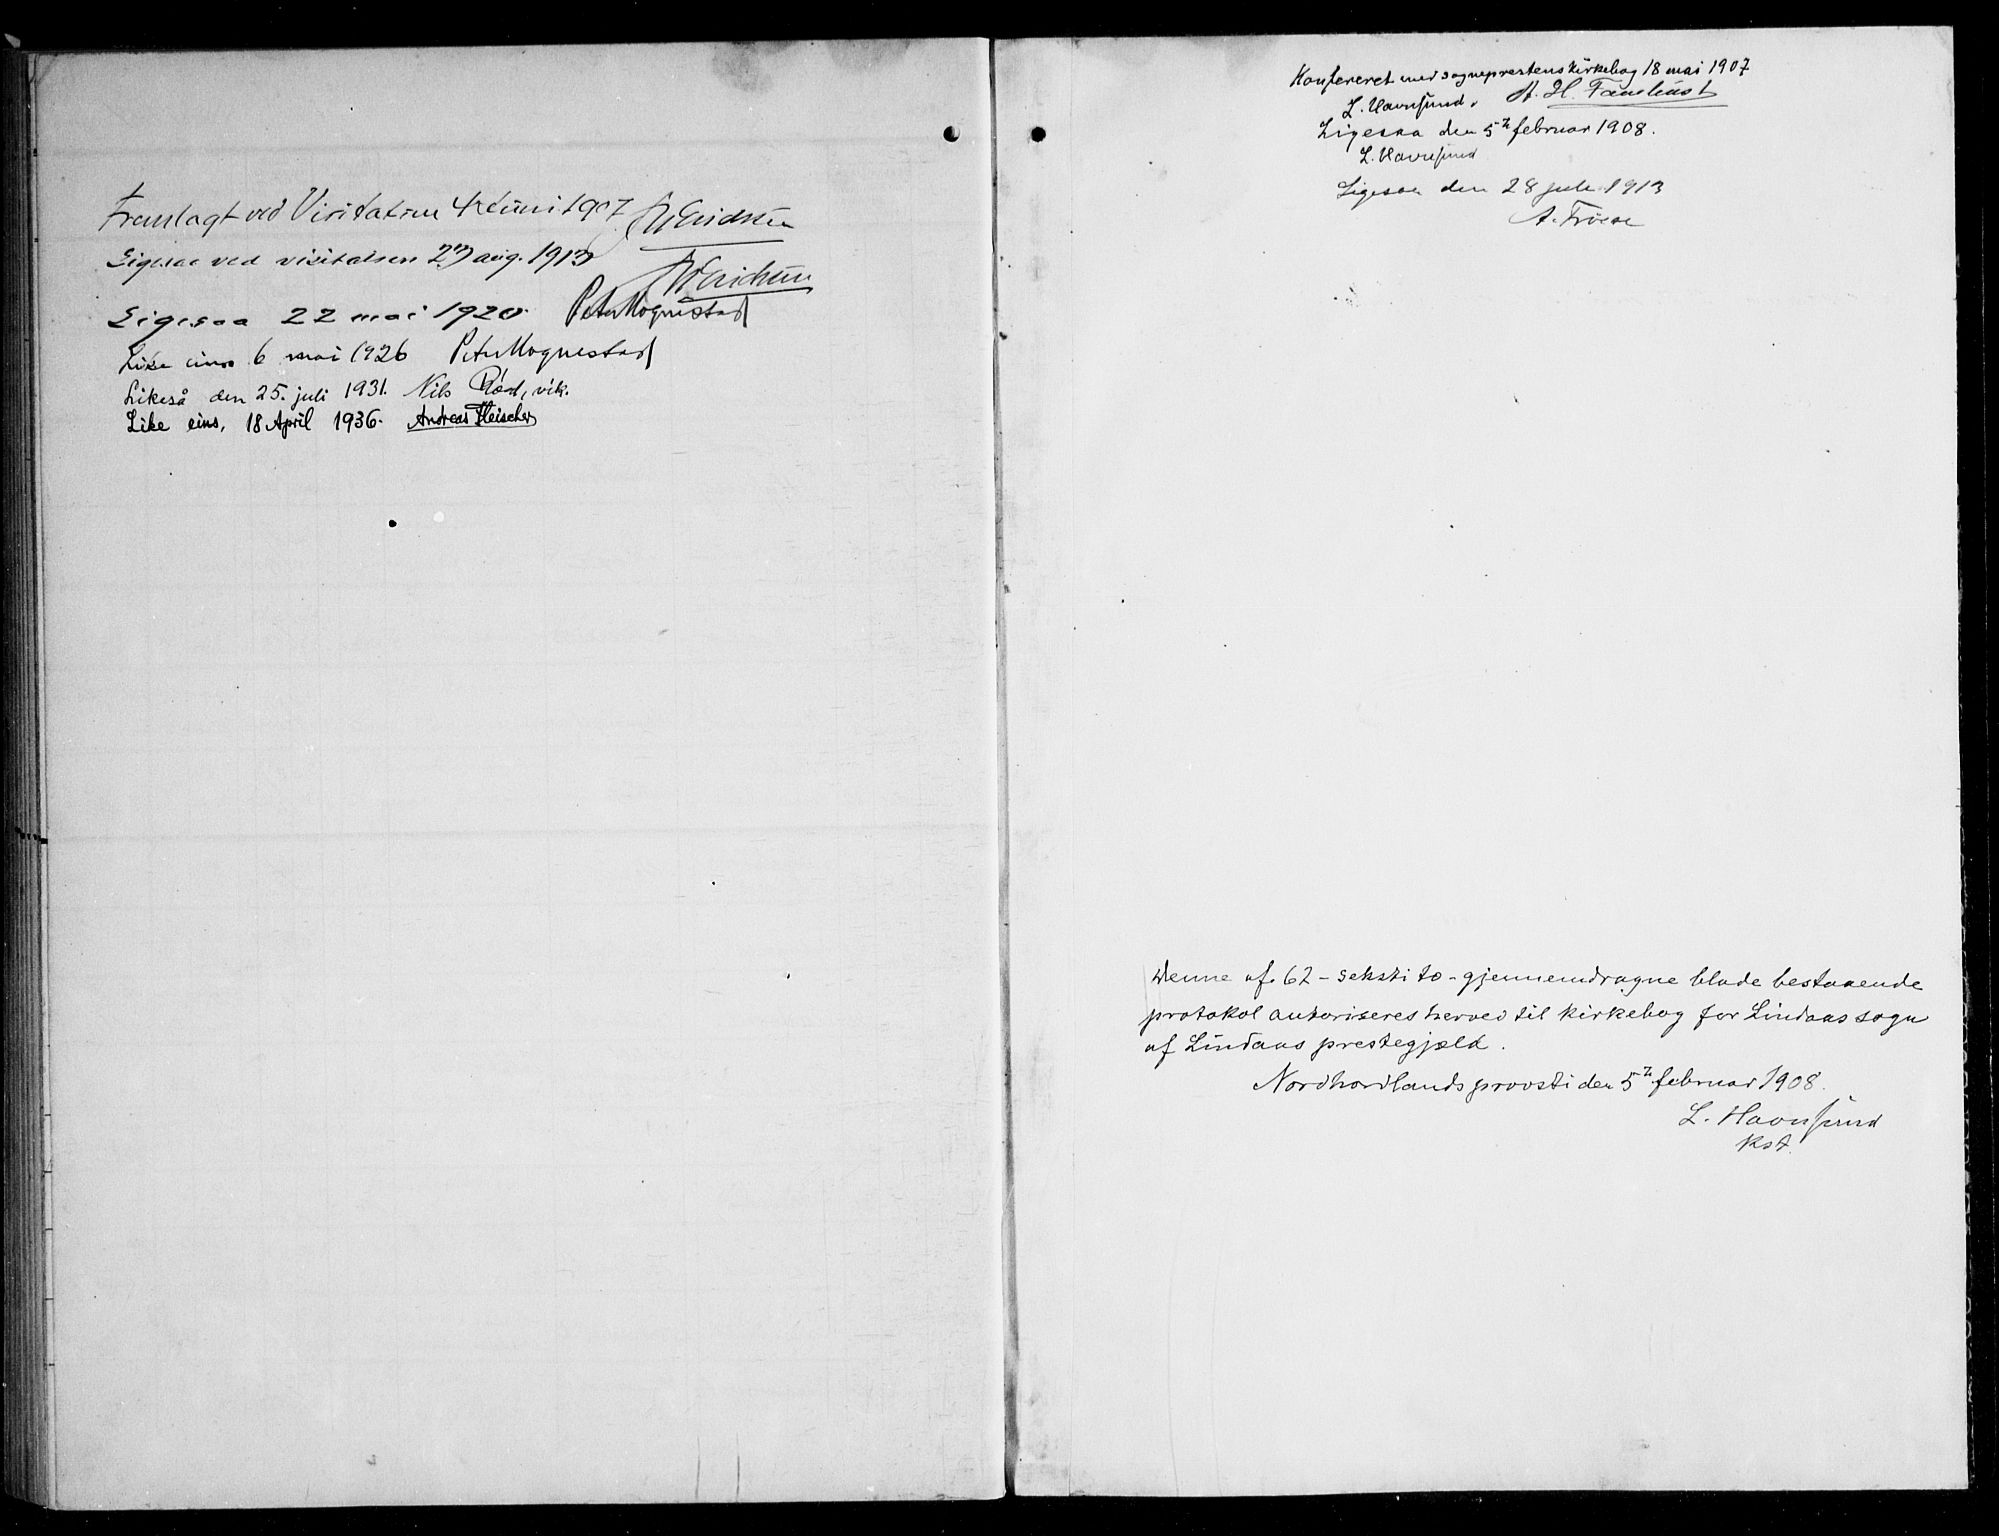 Fremlagt ved Visitatsen 4de Juni 1907 J. W. Erichsen
Ligesaa ved visitatsen 23 aug. 1913
Erichsen
Ligesaa 22 mai 1920. Peter Hognestad
Like eins 6 mai 1926 Peter Hognestad
Likeså den 25. juli 1931. Nils Röd, vik.
Like eins, 18 April 1936. Andreas Fleischer
Konfereret med sogneprestens kirkebog 18 mai 1907
L. Havnsund. A. H.
Ligesaa den 5te februar 1908.
L. Havnsund
Ligesaa den 28 juli 1913
A.
Denne af 62 - seksti to - gjennemdragne blade bestaaende
protokol autoriseres herved til kirkebog for Lindaas sogn
af Lindaas prestegjæld.
Nordhordlands provsti den 5te februar 1908.
L. Havnsund
kst.